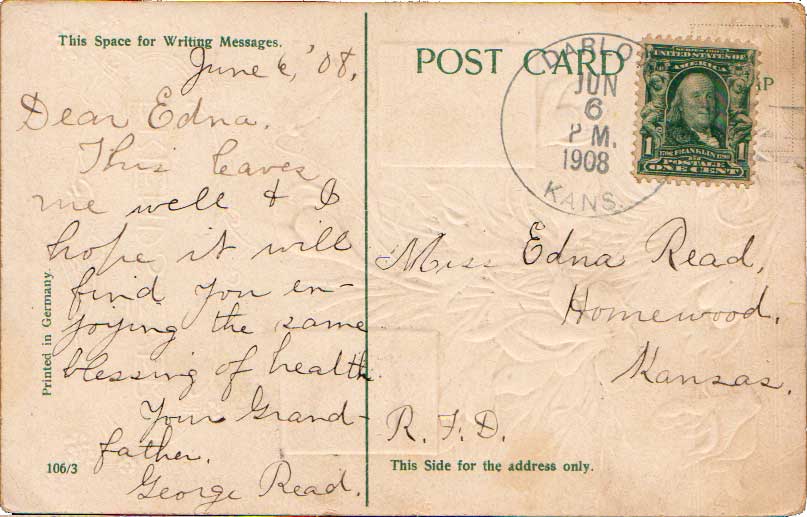 This Space for Writing Messages.
June 6, '08.
Dear Edna.
This leaves
me well & I
hope it will
find you en-
joying the same
blessing of health.
Your Grand-
father.
George Read.
Printed in Germany.
106/3
POST CARD
DARLO
JUN
6
P M.
1908
KANS.
SERIES 1902
UNITED STATES OF
AMERICA
1 1
FRANKLIN
POSTAGE
ONE CENT
Miss Edna Read,
Homewood,
Kansas.
R. F. D.
This Side for the address only.